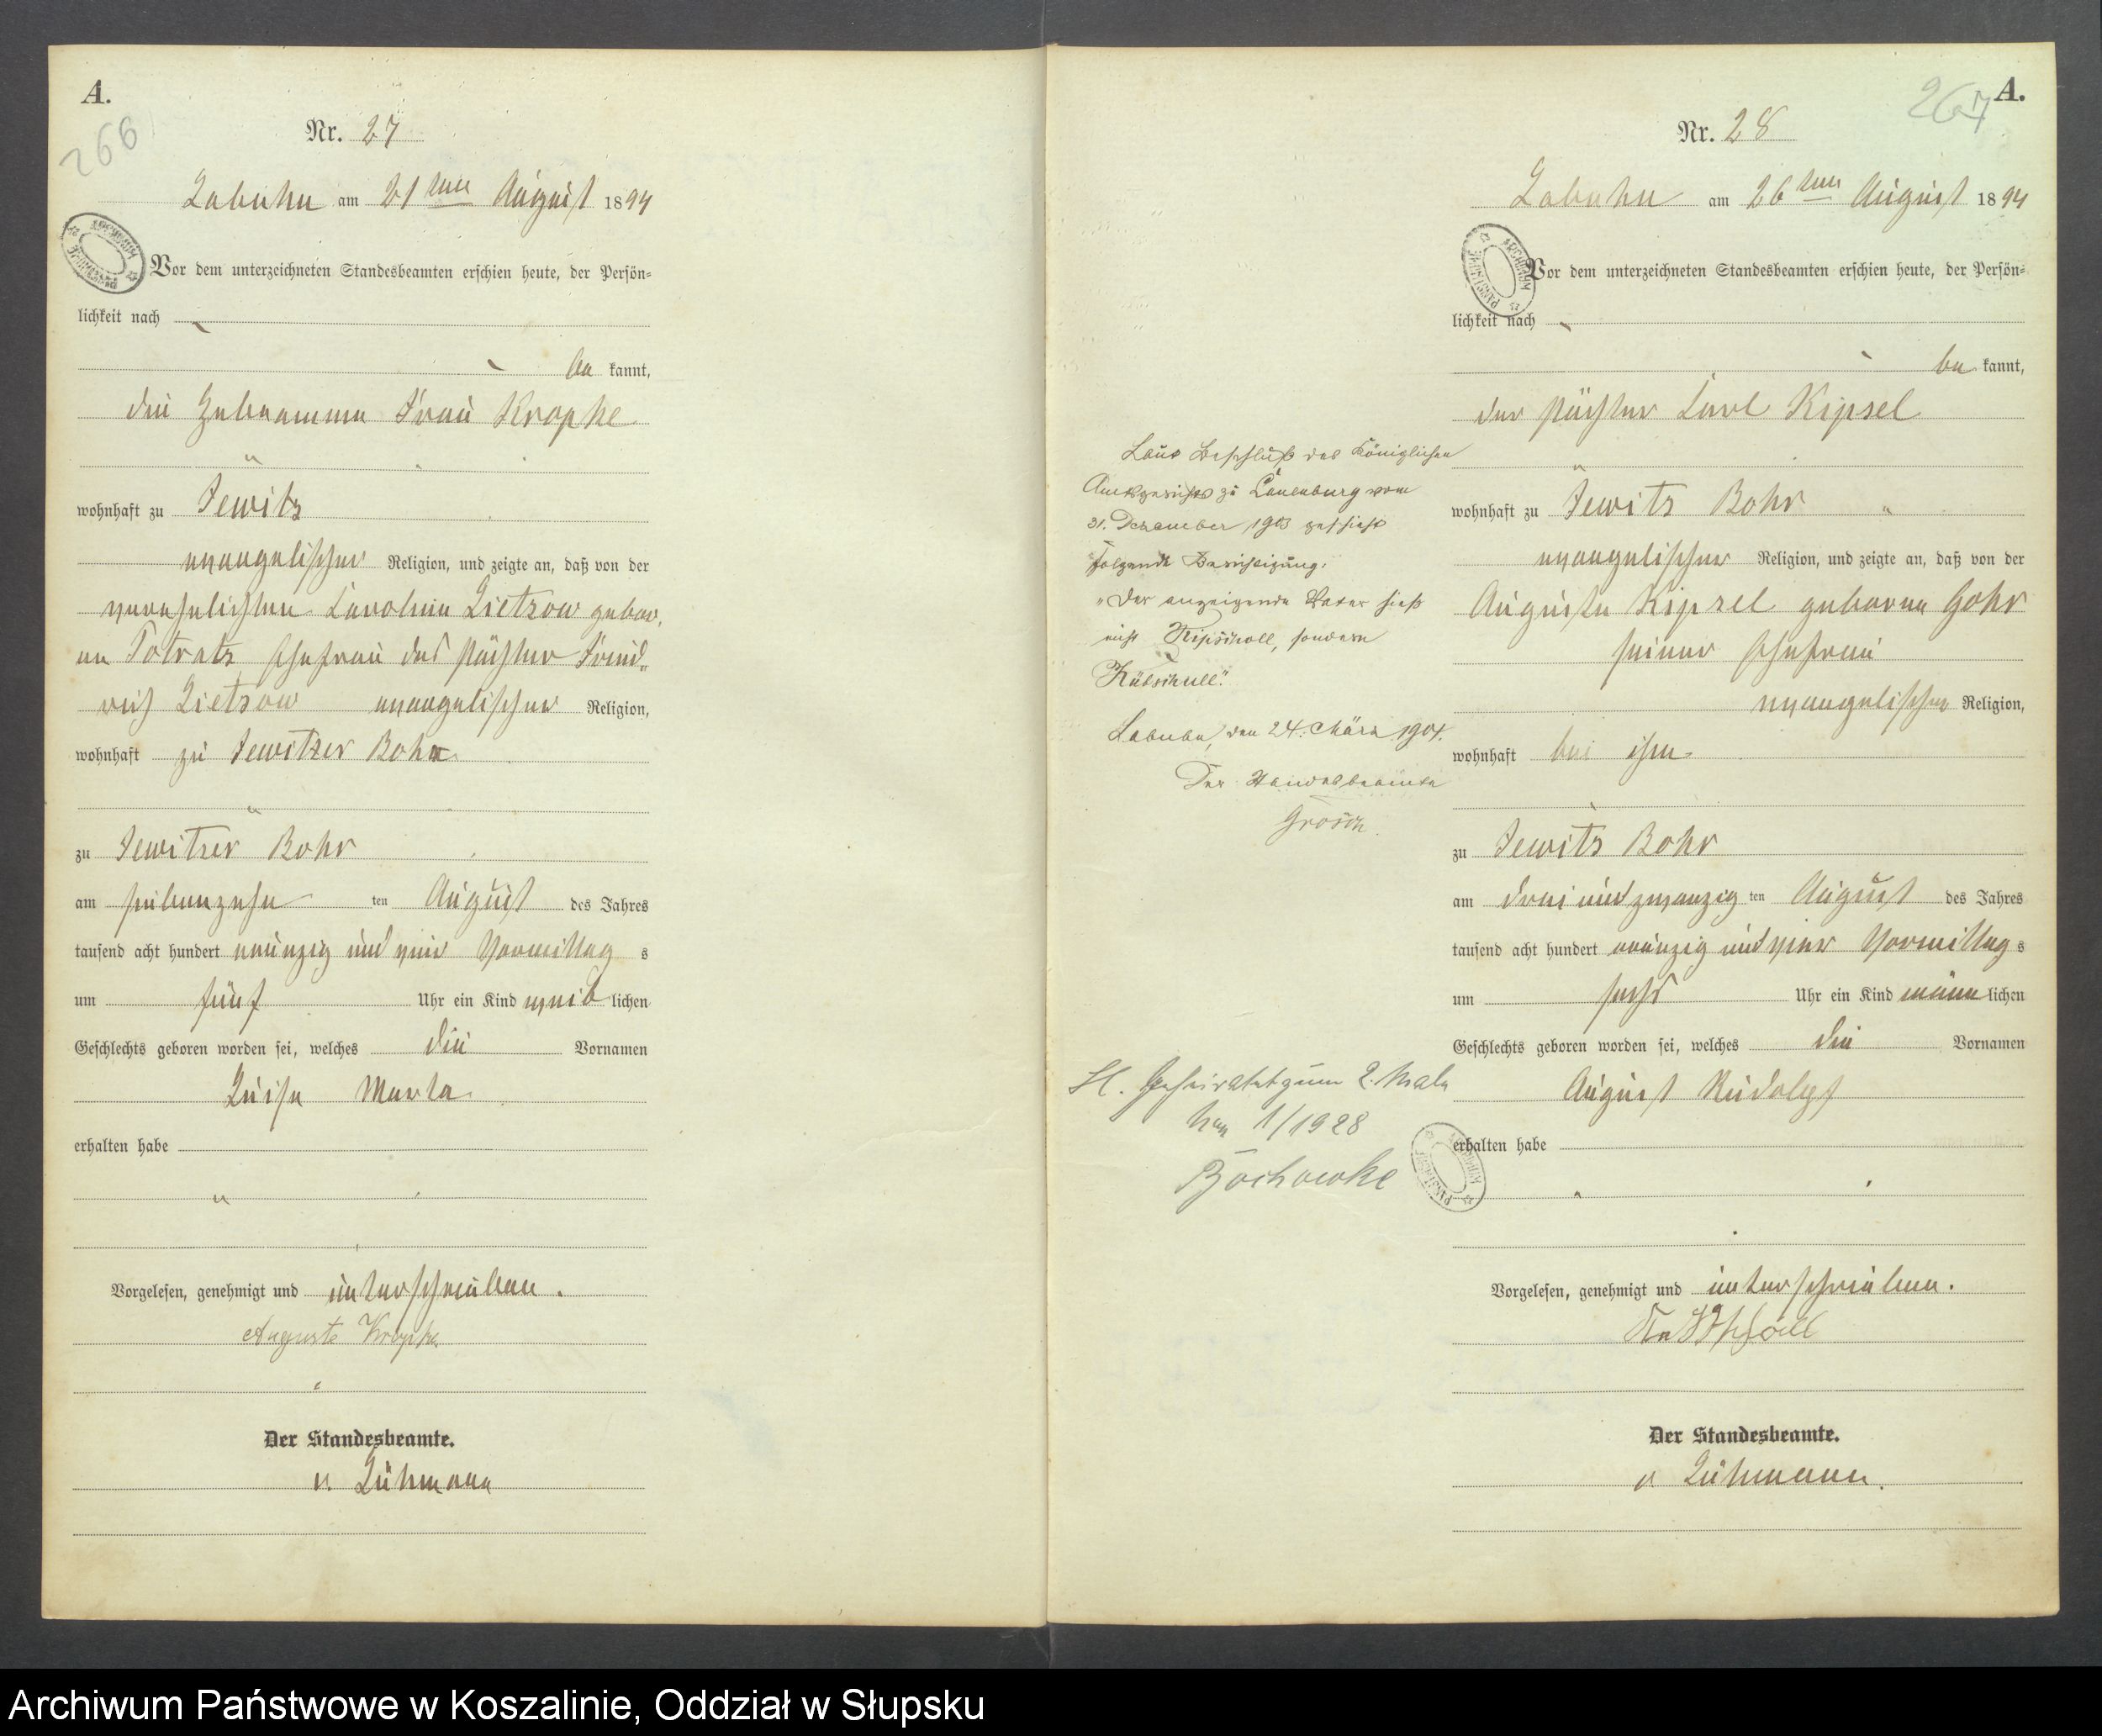 A.
266
Nr. 27
Labuhn am 21ten August 1894
Vor dem unterzeichneten Standesbeamten erschien heute, der Persön=
lichkeit nach
be kannt,
die Hebeamme Frau Kropke
wohnhaft zu Jewitz
evangelischer Religion, und zeigte an, daß von der
verehelichten Caroline Lietzow gebor,
en Totratz Ehefrau des Pächter Fried=
rich Lietzow evangelischer Religion,
wohnhaft zu Jewitzer Bohr
zu Jewitzer Bohr
am siebenzehn ten August des Jahres
tausend acht hundert neunzig und vier Vormittag s
um fünf Uhr ein Kind weib lichen
Geschlechts geboren worden sei, welches die Vornamen
Luise Marta
erhalten habe
Vorgelesen, genehmigt und unterschrieben.
Auguste Kropke
Der Standesbeamte.
v. Lühmann
267
A.
Nr. 28
Labuhn am 26ten August 1894
Vor dem unterzeichneten Standesbeamten erschien heute, der Persön=
lichkeit nach
be kannt,
der Pächter Carl Kipsel
wohnhaft zu Jewitz Bohr
evangelischer Religion, und zeigte an, daß von der
Auguste Kipsel geborne Gohr
seiner Ehefrau
evangelischer Religion,
wohnhaft bei ihm
zu Jewitz Bohr
am drei und zwanzig ten August des Jahres
tausend acht hundert neunzig und vier Vormittag s
um sechs Uhr ein Kind männ lichen
Geschlechts geboren worden sei, welches die Vornamen
August Rudolf
erhalten habe
Vorgelesen, genehmigt und unterschrieben.
Der Standesbeamte.
v Lühmann.
Laut Beschluß des Königlichen
Amtsgerichts zu Lauenburg vom
31. Dezember 1903 geschieht
folgende Berichtigung:
„Der anzeigende Vater hieß
nicht Kipscholl, sondern
Kübschull."
Labuhn, den 24. März 1904.
Der Standesbeamte
Grosch.
St. Geheiratet zum 2. Male
1/1928
Archiwum Państwowe w Koszalinie, Oddział w Słupsku